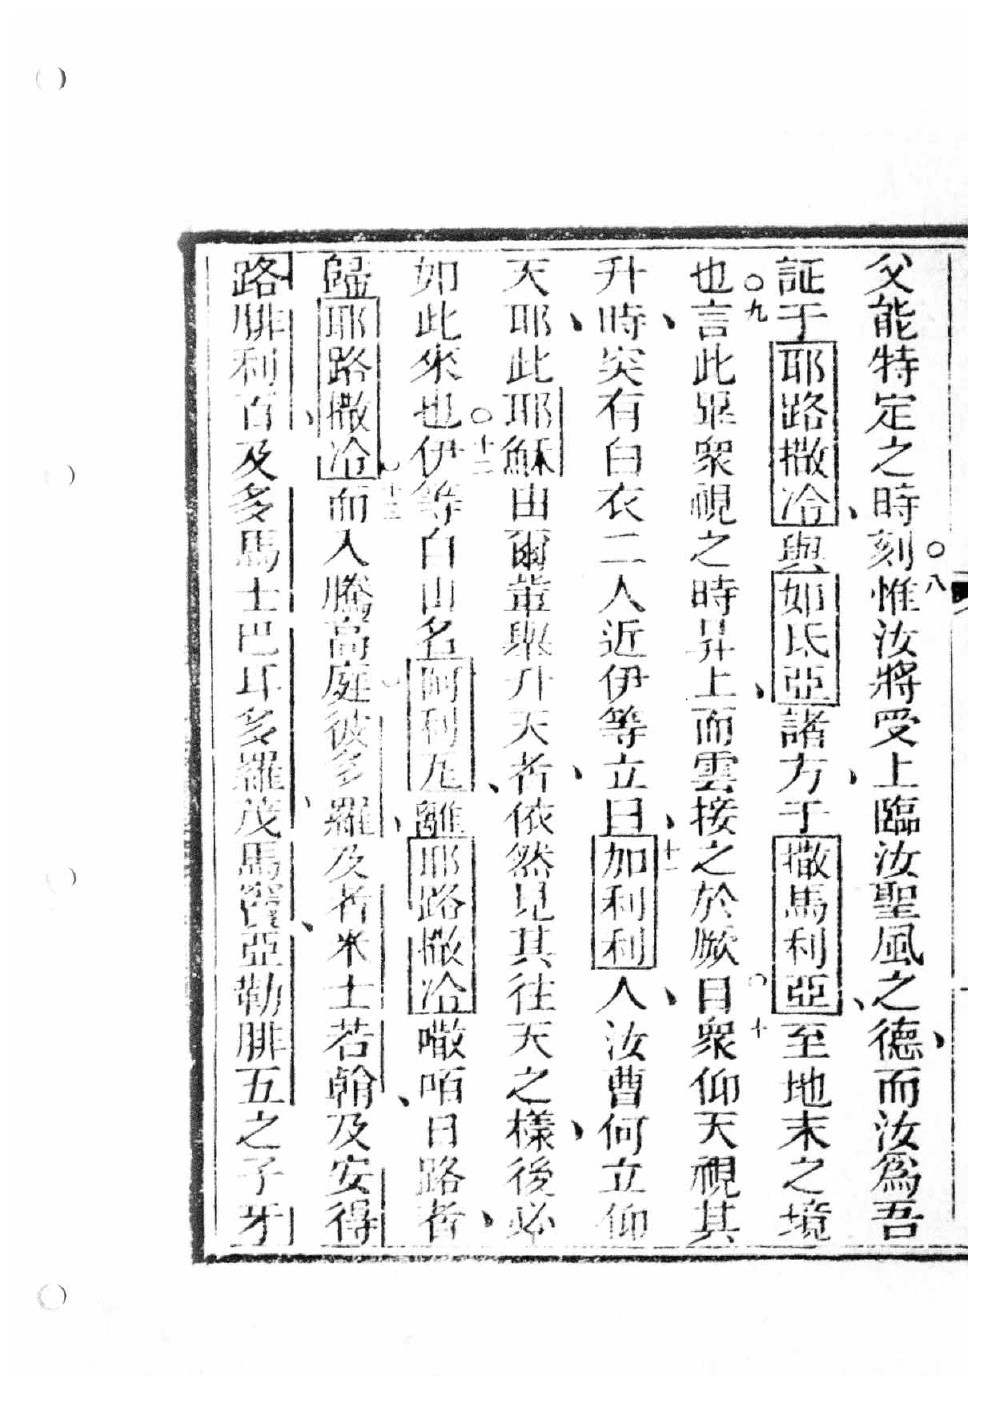 父能特定之時刻○八惟汝將受上臨汝聖風之德、而汝爲吾
証于耶路撒冷、與如氐亞諸方、于撒馬利亞、至地末之境
也○九言此畢衆視之時昇上、而雲接之於厥目○十衆仰天視其
升時、突有白衣二人近伊等立、十一曰加利利人、汝曹何立仰
天、耶此耶穌由爾輩與升天者、依然見其往天之樣、後必
如此來也○十二伊等自山名阿利厄、離耶路撒冷嗷咟日路者、
歸耶路撒冷○十三而入騰高庭○彼多羅、及者米士若翰、及安得
路、腓利百及多馬士巴耳多羅茂、馬竇、亞勒腓五之子牙